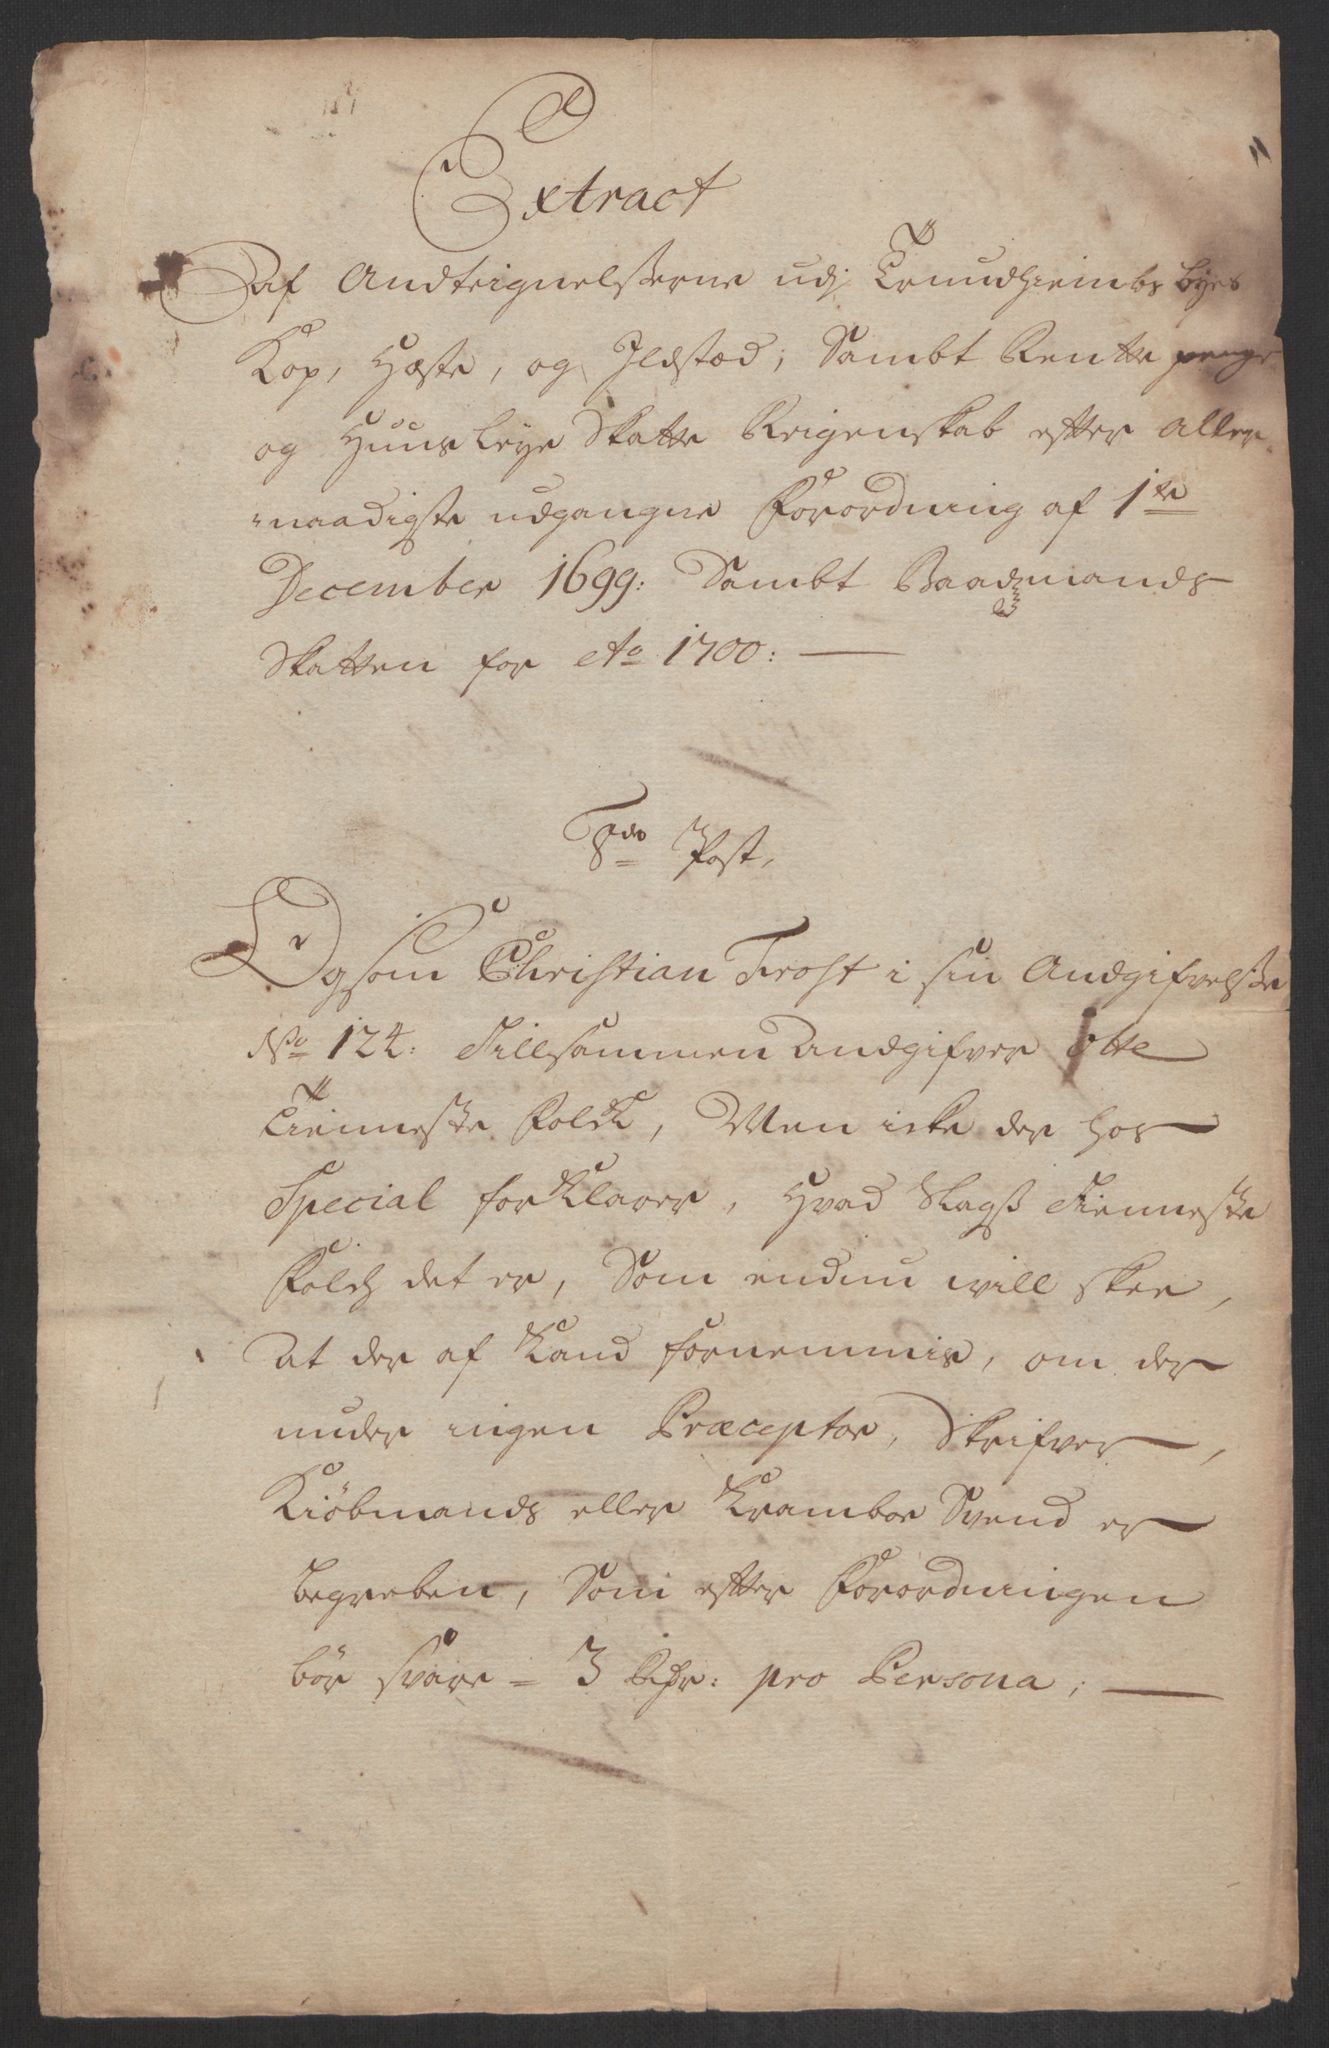 Extract
Af Andteignelsserne udj Trundhiembs byes
Kop, Hæste, og Ildstæd, Sambt Rentte penge
og Huus leye Skatte Reigenskab efter aller
naadigste udgangne Forordning af 1te
December 1699: Sambt Baadzmands
Skatten for Ao 1700:
8de Post,
Og som Christian Frost i sin Andgifvelsse
No 124: Tillsammen Andgifver Otte
Tienneste Folck, Men icke der hos
Special forKlarer, Hvad Slags Tienneste
Folch det er, Som endnu will skee,
At der af Kand fornemmis, om der
under ingen Præceptor, Skrifver,
Kiöbmands eller Kramboe Svend er
begreben, Som efter Forordningen
bör svare = 3 Rdr: pro Persona;